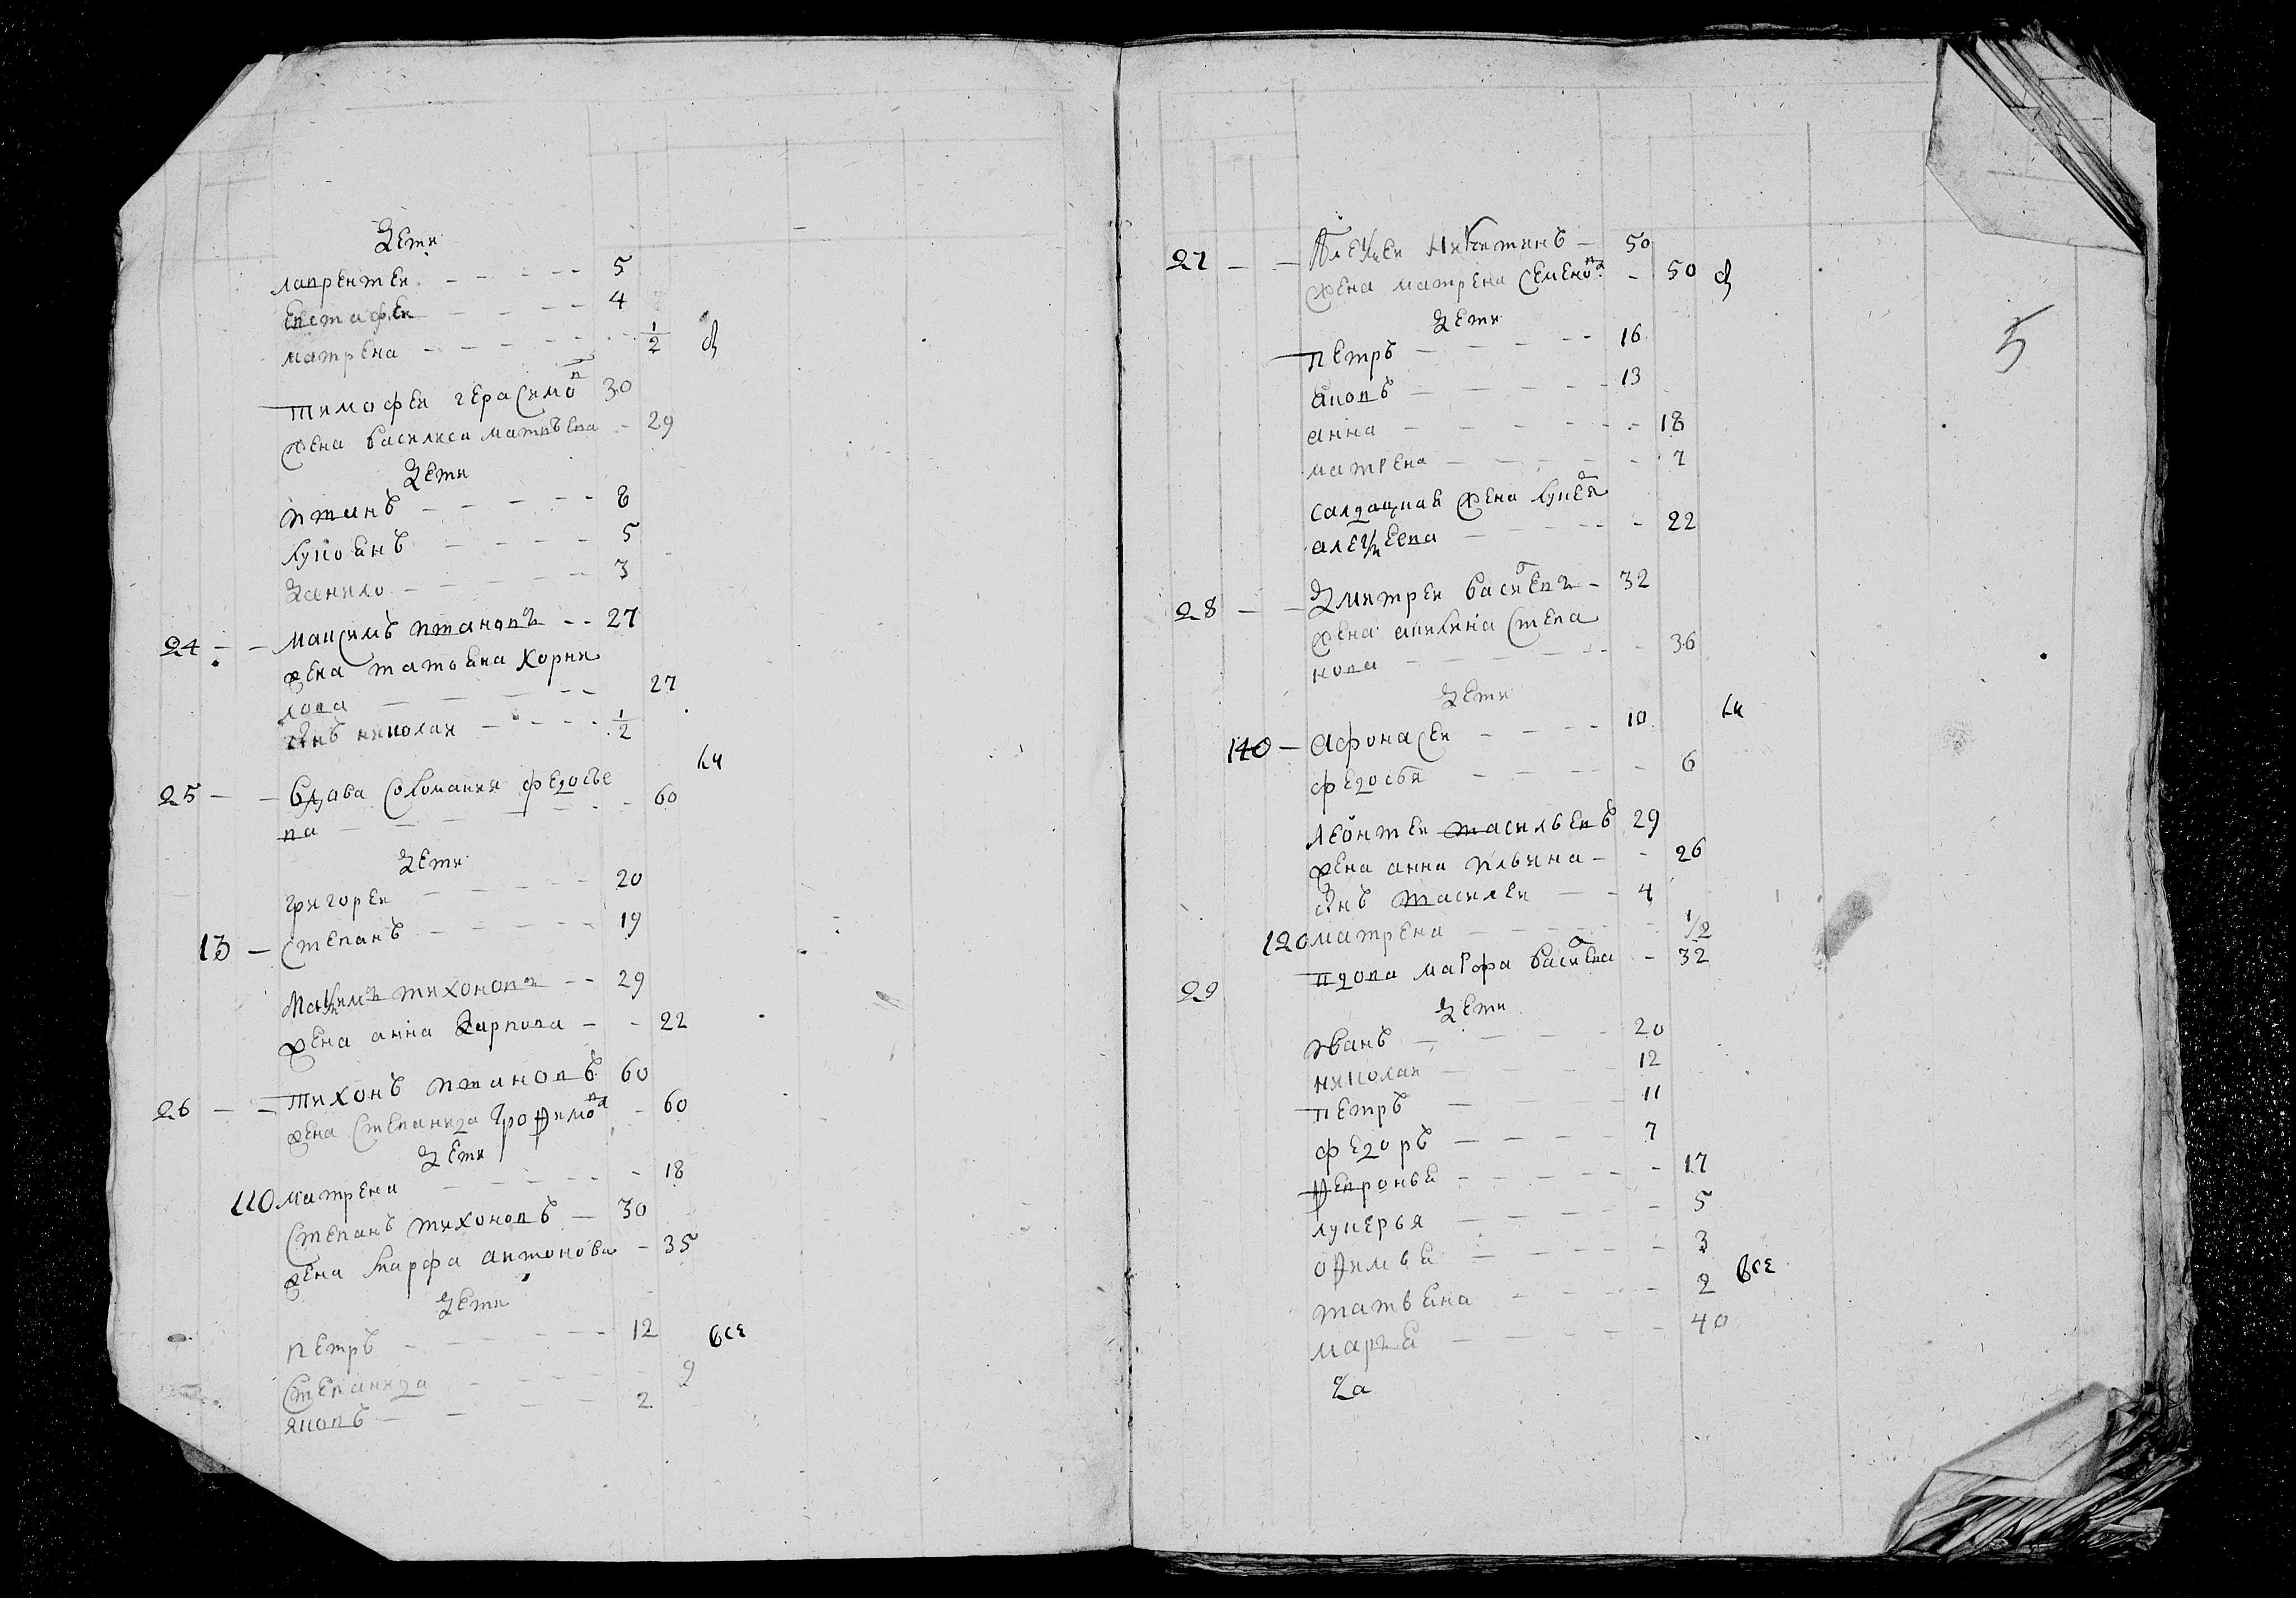 Дети
лаврентеи 5
евстафеи 4
матрена 1/2
тимофеи герасимов 30
жена василиса матвѣева 29
Дети
иванъ 8
куприянъ 5
данило 3
24 максимъ ивановъ 27
жена татьяна корни
лова 27
сынъ николаи 1/2
25 вдова соломания федосѣе
ва 60
Дети
григореи 20
13 степанъ 19
максимъ тихоновъ 29
жена анна карпова 22
26 тихонъ ивановъ 60
жена степанида трофимова 60
Дети
110 матрена 18
степанъ тихоновъ 30
жена марфа антонова 35
Дети
петръ 12
все
степанида 9
яковъ 2
5
27 Алексеи Никитинъ 50
жена матрена семенова 50
Дети
петръ 16
яковъ 13
анна 18
матрена 7
салдацкая жена
алексеева 22
28 Дмитреи василев 32
жена акилина степа
нова 36
Дети
140 афонасеи 10
федосья 6
леонтеи васильевъ 29
жена анна ильина 26
сынъ василеи 4
120 матрена 1/2
29 вдова марфа василева 32
Дети
иванъ 20
николаи 12
петръ 11
федоръ 7
февронья 17
лукерья 5
офимья 3
татьяна 2
все
марья 40